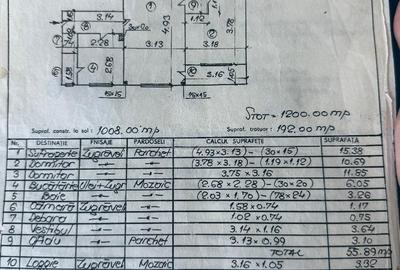 3.14
3.20
4.93
1.12
3.78
2.28
3.13
3.18
2.68
3.16
1.05
15x15
15x15
STOT = 1200.00 mp
Supraf. constr. la sol : 1008.00 mp Supraf. trotuar : 192.00 mp
Nr. DESTINAȚIE FINISAJE PARDOSELI CALCUL SUPRAFEȚE SUPRAFAȚA
1 Sufragerie Zugrăveli Parchet (4.93×3.13)-(30×15) 15.38
2 Dormitor -"- -"- (3.78×3.18)-(1.19×1.12) 10.69
3 Dormitor -"- -"- 3.75×3.16 11.85
4 Bucătărie Ulei+Zugr Mozaic (2.68×2.28)-(30×20) 6.05
5 Baie -"- -"- (2.03×1.70)-(78×24) 3.26
6 Cămară Zugrăveli -"- 1.58×0.74 1.17
7 Debara -"- -"- 1.02×0.74 0.75
8 Vestibul -"- -"- 3.14×1.16 3.64
9 Parchet 3.13×0.99 3.10
TOTAL 55.89 mp
10 Loggie Zugrăveli Mozaic 3.16×1.05 3.32